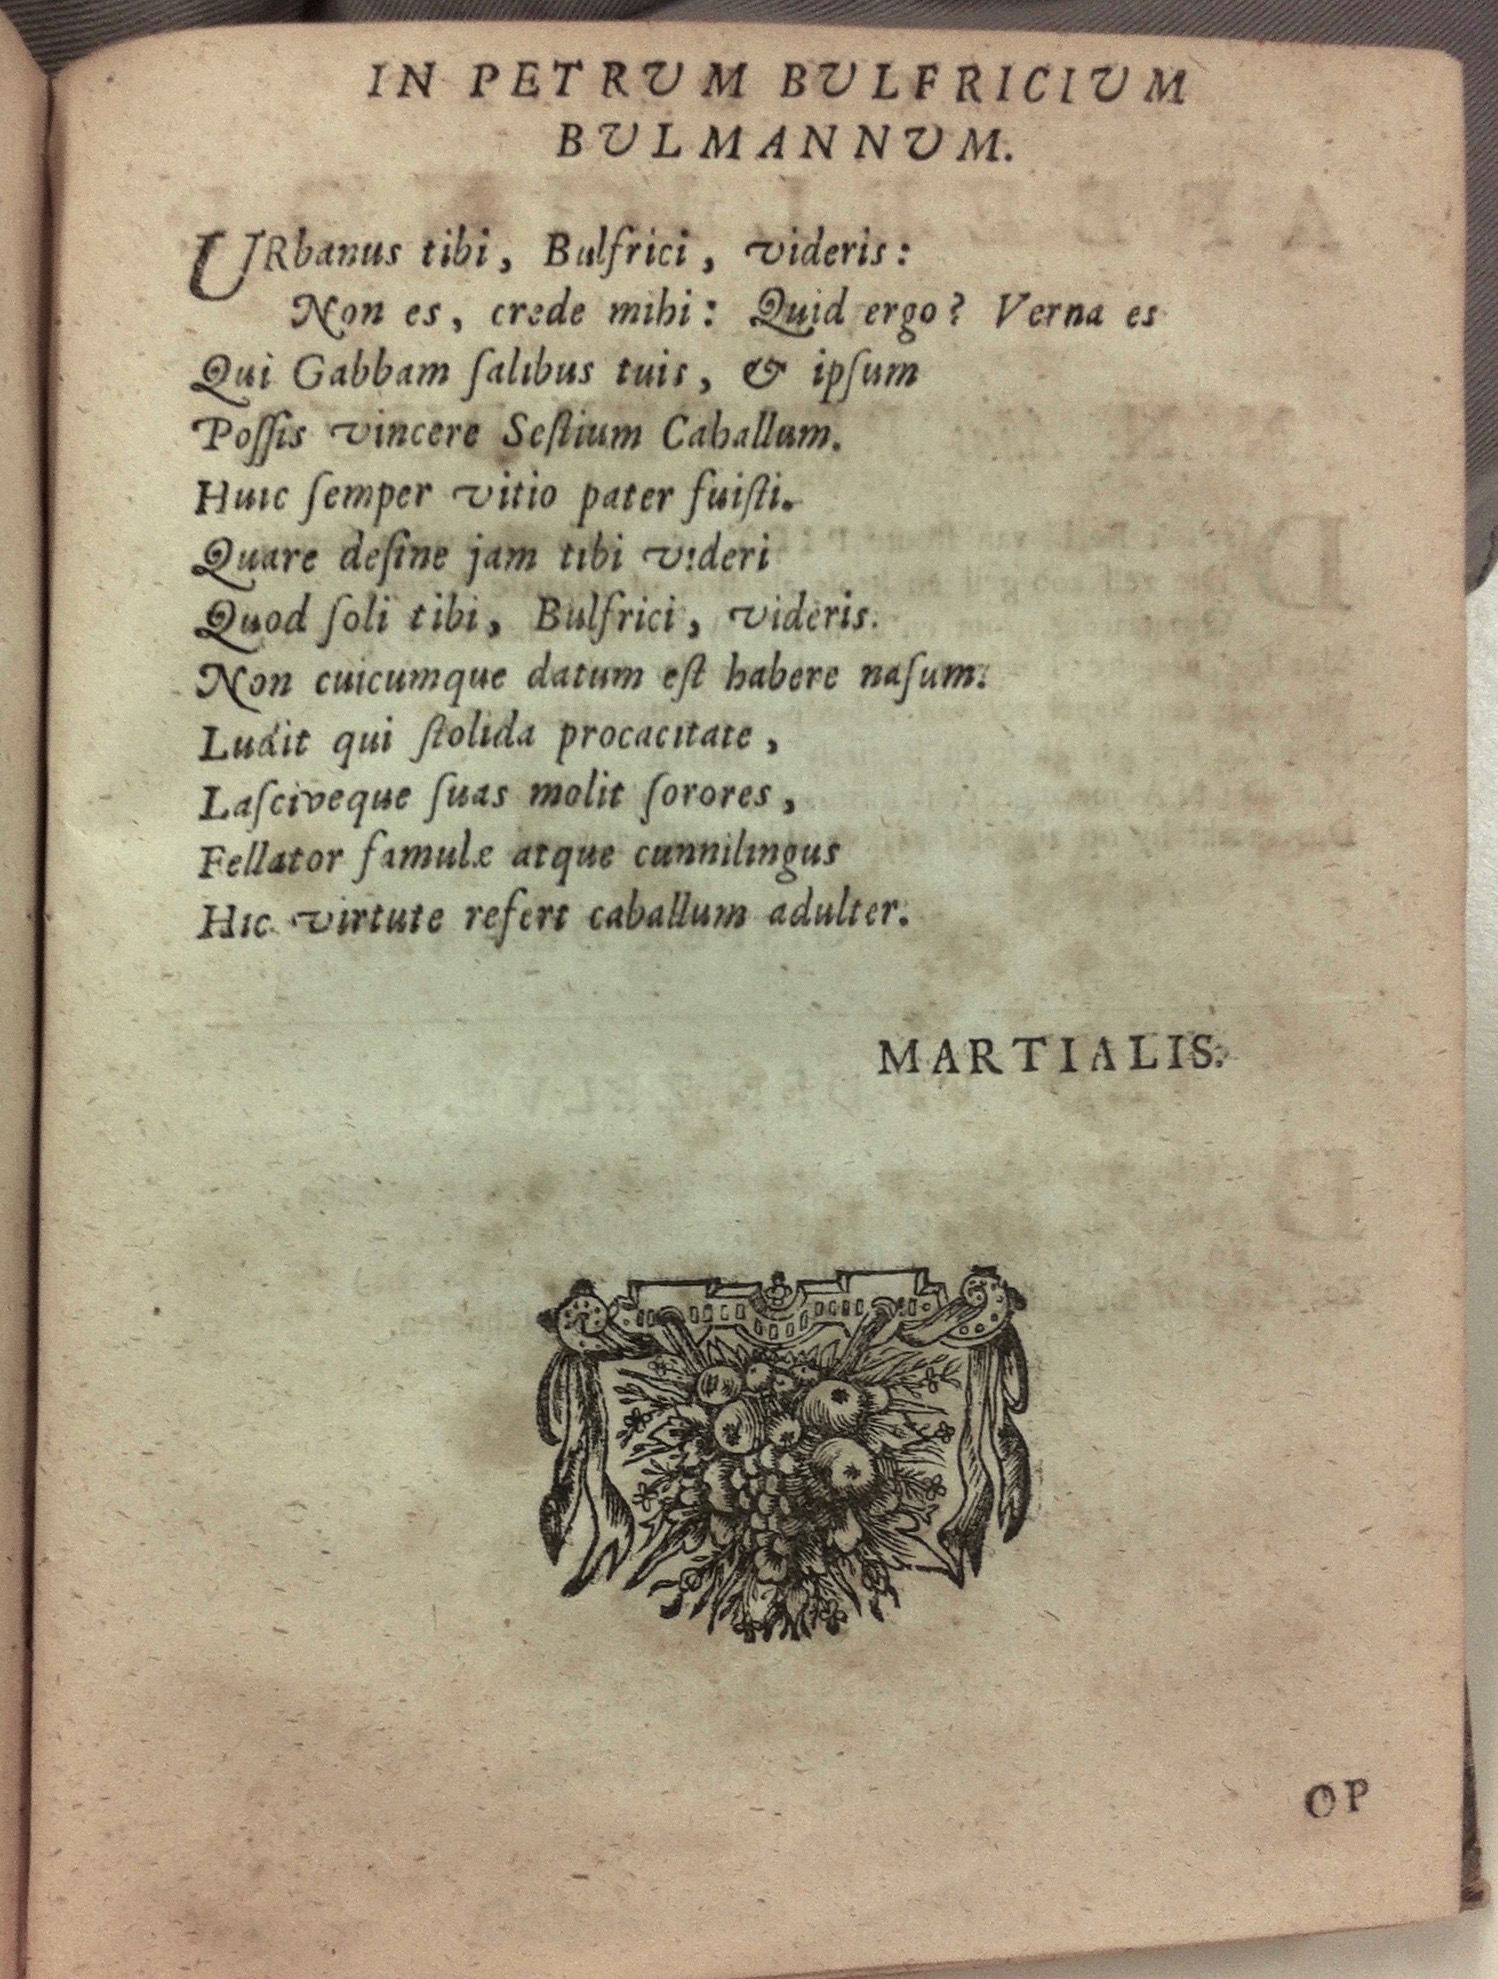 IN PETRUM BULFRICIUM
BULMANNUM.
URbanus tibi, Bulfrici, videris:
Non es, crede mihi: Quid ergo? Verna es
Qui Gabbam ſalibus tuis, & ipſum
Poſſis vincere Seſtium Caballum.
Huic ſemper vitio pater fuiſti.
Quare deſine jam tibi videri
Quod ſoli tibi, Bulfrici, videris.
Non cuicumque datum eſt habere naſum:
Ludit qui ſtolida procacitate,
Laſciveque ſuas molit ſorores,
Fellator famulæ atque cunnilingus
Hic virtute refert caballum adulter.
MARTIALIS.
OP